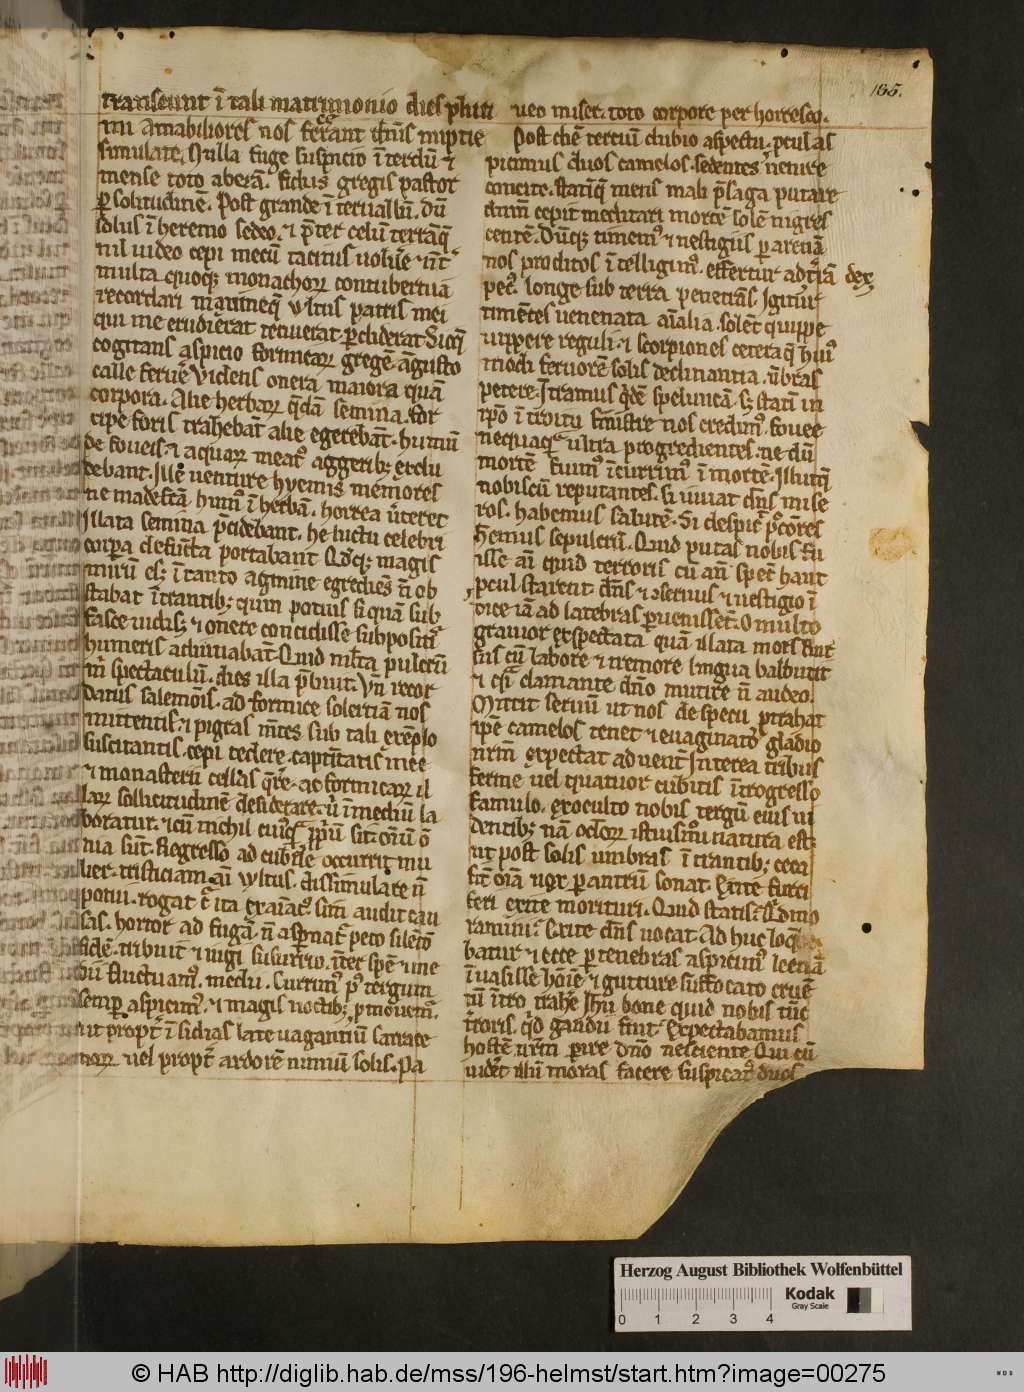 185.
transeunt ī tali matrimonio dies pluri
mi Amabiliores nos feceͬant dn̄is nuptie
simulate. Nulla fuge suspicio ī terdū ⁊
mense toto aberā. fidus gregis pastor
ꝑ solitudinē. Post grande ī teruallū. Dū
solus ī heremo sedeo. ⁊ p̄ter celū terrāq̄
nil video cepi mecū tacitus uoluē
multa quoqꝫ monachoꝝ contubernia
recordari maximeq̄ vltus patris mei
qui me erudierat tenuerat ꝑdiderat Sicq̄
cogitans aspicio formicaꝝ gregē āgusto
calle feruē Videns onera maiora quā
corpora. Alie herbaꝝ q̄dā semina. for
cipe foris trahebāt alie egerebāt. humū
de foueis. ⁊ aquaꝝ meatꝰ aggeribꝫ exclu
debant. Ille venture hyemis memores
ne madefcā humꝰ ī herbā. horrea ū̄teret
illata semina p̄cidebant. he luctu celebri
corpora defuncta portabant Qd̓qꝫ magis
mirū ē. ī tanto agmine egrediēs n̄ ob
stabat ī trantibꝫ quin potius si quā sub
fasce vidisꝫ ⁊ onere concidisse suppositꝭ
humeris adiuuabāt. Quid ml̄ta pulcrū
m̄ spectaculū. dies illa p̄buit. Vn̄ recor
datus salemōis. ad formice solertiā nos
mittentis. ⁊ pigras m̄tes sub tali exēplo
suscitantis. cepi tedere. captiuitatis mee
⁊ monasterii cellas q̄rere. ac formicaꝝ il
laꝝ sollicitudinē desiderare. ū ī mediū la
boratur. ⁊ cū nichil cuiꝰq̄ ꝓpriū sit. om̄iū o
nia sūt. Regresso ad cubile occurrit mu
lier. tristiciam ai̅ vltus. dissimulare n̄
potui. rogat c̄ ita exaīatꝰ sim audit cau
sas. hortor ad fugā. n̄ aspernat̄ peto silētiū
fidē. tribuit ⁊ iugi susurrio. īter spē ⁊ me
tū fluctuamꝰ. mediū. Curimꝰ pꝰ tergum
semp̱ aspicimꝰ. ⁊ magis noctibꝫ p̄mouemꝰ
ut propt̄ ī sidias late uagantiū sarrace
noꝝ vel propt̄ ardorē nimiū solis. Pa
ueo miser. toto corpore per horresco.
Post diē terciū dubio aspectu. ꝓcul as
picimus duos camelos. sedentes venire
concite. statīq̄ mens mali p̄saga putare
dnm̄ cepit meditari mortē solē nigres
centē. Dūqꝫ timemꝰ ⁊ uestigiis ꝑ arenā
nos proditos ī telligimꝰ. offertur ad t̄ram dex
petꝰ. longe sub terra penetrās. Igitur
timētes uenenata aīalia. solēt quippe
uippere reguli. ⁊ scorpiones ceteraq̄ huiꝰ
modi feruorē solis declinantia. ūbras
petere. Itramus q̄dē speluncā. sꝫ statī in
ipō ī troitu sinistre nos credimꝰ. fouee
nequaq̄ ultra progredientes. ne dū
mortē fugimꝰ ī currimꝰ ī mortē. Illudq̄
nobiscū reputantes. si iuuat dn̄s mise
ros. habemus salutē. Si despic̄ p̄ctōres
hemus sepulcrū. Quid putas nobis fu
isse ai̅ quid terroris cū ān spec̄ haut
ꝓcul starent dn̄s ⁊ ↄseruus ⁊ uestigio ī
dice iā ad latebras ꝑuenissēt. O multo
grauior exspectata quā illata mors Rur
sus cū labore ⁊ tremore lingua balbutit
⁊ q̄si clamante dn̄o mutire n̄ audeo.
Mittit seruū ut nos de specu ꝓtrahat
ipē camelos tenet ⁊ euaginatō gladio
nr̄m expectat aduentū Interea tribus
ferme uel quatuor cubitis ītrogresso
famulo. exoculto nobis tergū eius ui
dentibꝫ nā ocloꝝ istiusmōi natura est
ut post solis umbras ī trantibꝫ ceca
sīt om̄ia uox ꝑ antrū sonat. Exite furci
feri exite morituri. Quid statis. Qd̓ mo
ramini. Exite dn̄s uocat. Adhuc loq̄be
batur ⁊ ecce ꝑ tenebras aspicimꝰ leenā
īuasisse hoīē. ⁊ gutture suffocato cruē
tū ītro trahē. Ihū bone quid nobis tūc
t̄roris. qd̓ gaudii fuit Expectabamus
hostē nr̄m ꝑire dn̄o nesciente Qui cū
uidēt illū moras facere suspicatꝰ duos
Herzog August Bibliothek Wolfenbüttel
Kodak
Gray Scale
0 1 2 3 4
© HAB http://diglib.hab.de/mss/196-helmst/start.htm?image=00275